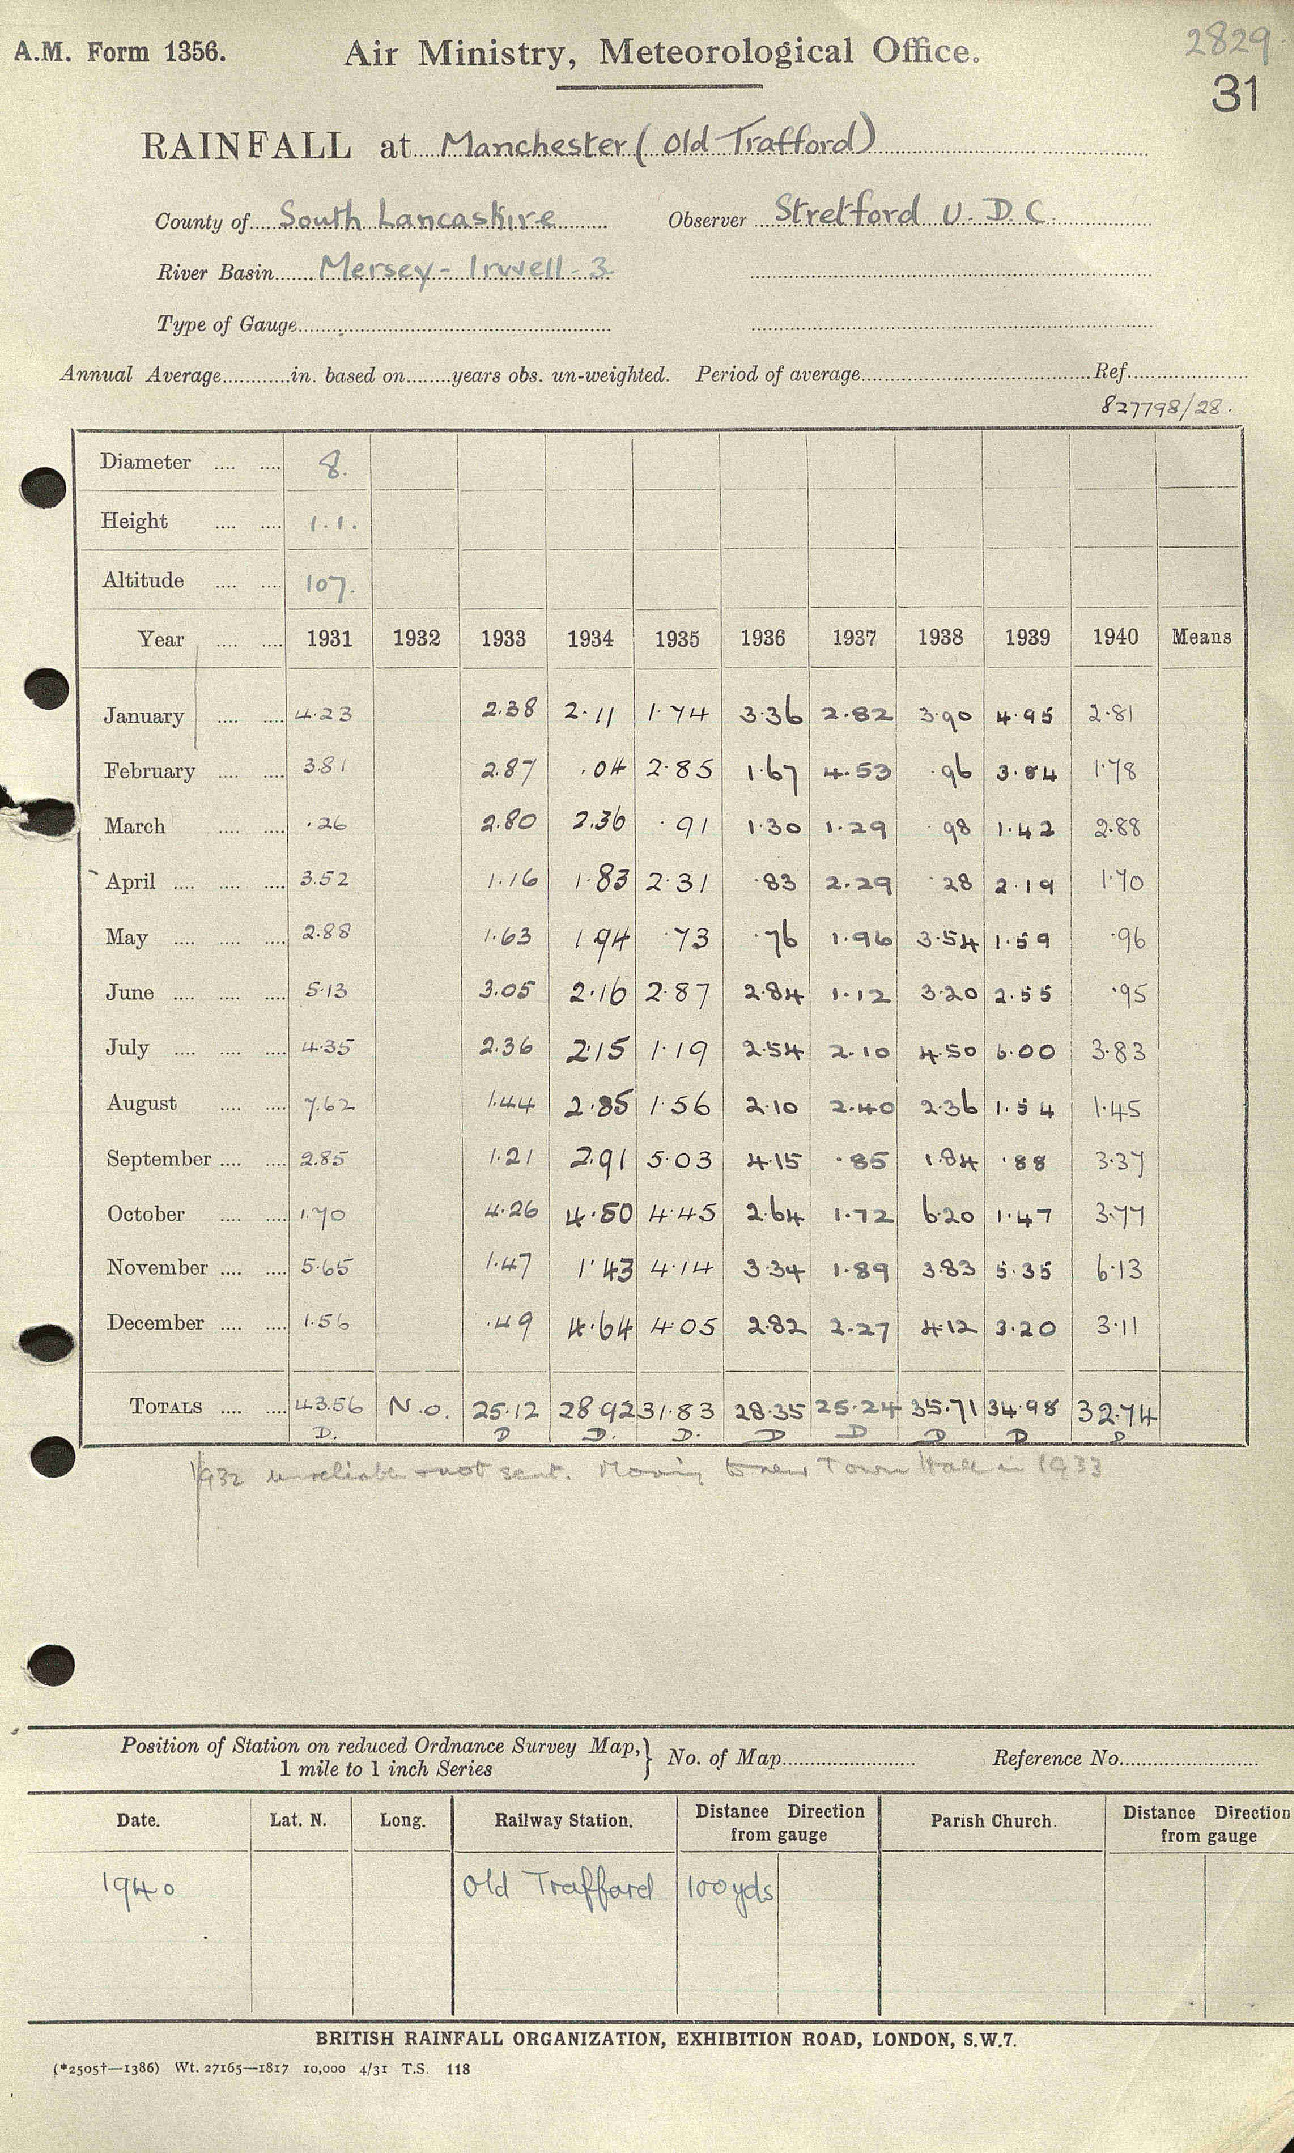 A.M. Form 1356.
Air Ministry, Meteorological Office.
2829
31
RAINFALL at Manchester (Old Trafford)
County of South Lancashire Observer Stretford U.D.C.
River Basin Mersey - Irwell - 3
Type of Gauge
Annual Average in. based on years obs. un-weighted. Period of average Ref.
827798/28.
Diameter 8.
Height 1.1.
Altitude 107.
Year 1931 1932 1933 1934 1935 1936 1937 1938 1939 1940 Means
January 4.23 2.38 2.11 1.74 3.36 2.82 3.90 4.95 2.81
February 3.81 2.87 .04 2.85 1.67 4.53 .96 3.84 1.78
March .26 2.80 2.36 .91 1.30 1.29 .98 1.42 2.88
April 3.52 1.16 1.83 2.31 .83 2.29 .28 2.19 1.70
May 2.88 1.63 1.94 .73 .76 1.96 3.54 1.59 .96
June 5.13 3.05 2.16 2.87 2.84 1.12 3.20 2.55 .95
July 4.35 2.36 2.15 1.19 2.54 2.10 4.50 6.00 3.83
August 7.62 1.44 2.85 1.56 2.10 2.40 2.36 1.54 1.45
September 2.85 1.21 2.91 5.03 4.15 .85 1.84 .88 3.37
October 1.70 4.26 4.50 4.45 2.64 1.72 6.20 1.47 3.77
November 5.65 1.47 1.43 4.14 3.34 1.89 3.83 5.35 6.13
December 1.56 .49 4.64 4.05 2.82 2.27 4.12 3.20 3.11
TOTALS 43.56 N.o. 25.12 28.92 31.83 28.35 25.24 35.71 34.98 32.74
D. D D. D. D D D D D
1932 unreliable - not sent. Moving to new Town Hall in 1933
Position of Station on reduced Ordnance Survey Map, } No. of Map Reference No.
1 mile to 1 inch Series
Date. Lat. N. Long. Railway Station. Distance Direction from gauge Parish Church. Distance Direction from gauge
1940 Old Trafford 100 yds
BRITISH RAINFALL ORGANIZATION, EXHIBITION ROAD, LONDON, S.W.7.
(*2505†—1386) Wt. 27165—1817 10,000 4/31 T.S. 118